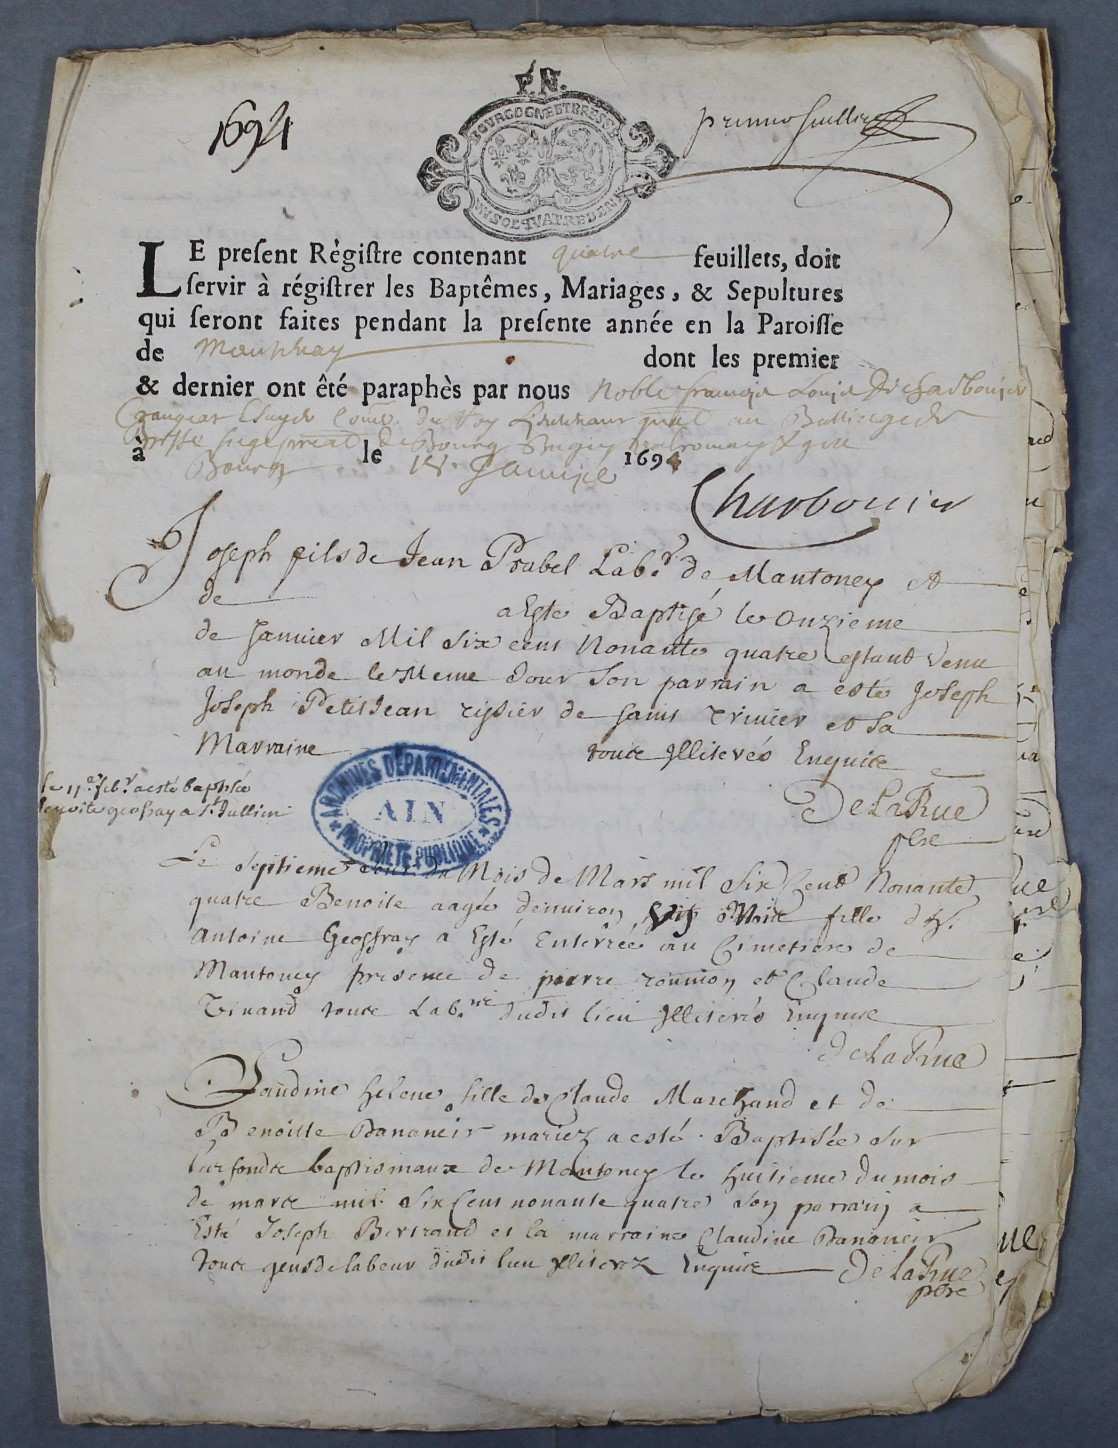 P.N.
1694
BOURGOGNE ET BRESSE
primo feuillet
VN SOL QVATRE DEN
LE present Règistre contenant quatre feuillets, doit
servir à régistrer les Baptêmes, Mariages, & Sepultures
qui seront faites pendant la presente année en la Paroisse
de dont les premier
& dernier ont êté paraphès par nous Noble françois Louis De charbonier
Crangeac Escuyer Cons.er du Roy Lieutenant gnâl au Bailliage de
Bresse siege De Bourg Bugey
à Bourg le Janvier 1694
Charbonier
Joseph fils de Jean Prabel Lab.r de Mantoney et
de a Esté Baptisé le Onzieme
de Janvier Mil Six cens Nonante quatre estant venu
au monde le Meme Jour Son parrain a esté Joseph
Joseph Petitjean tissier de saint trivier et Sa
Marraine tous Illiterés Enquis
De La Rue
pbre
le 11.e feb.r a esté baptisée
benoite geofray a S.t Jullien
ARCHIVES DÉPARTEMENTALES
AIN
PROPRIÉTÉ PUBLIQUE
Le Septieme Jour du Mois de Mars mil Six Cent Nonante
quatre Benoite aagée denviron Mois fille d'h.
Antoine Geoffray a Esté Enterrée au Cimetiere de
Mantoney présence de pierre et Claude
tous Lab. dudit lieu Illiterés Enquis
De La Rue
Claudine helene fille de Claude Marchand et de
Benoitte Bananeir mariez a esté Baptisée Sur
les fonds baptismaux de Mantoney le huitieme du mois
de mars mil Six Cent nonante quatre Son parrain a
Esté Joseph Bertrand et la marraine Claudine Bananeir
tous gens de labeur dudit lieu Illiterez Enquis De la Rue
pbre